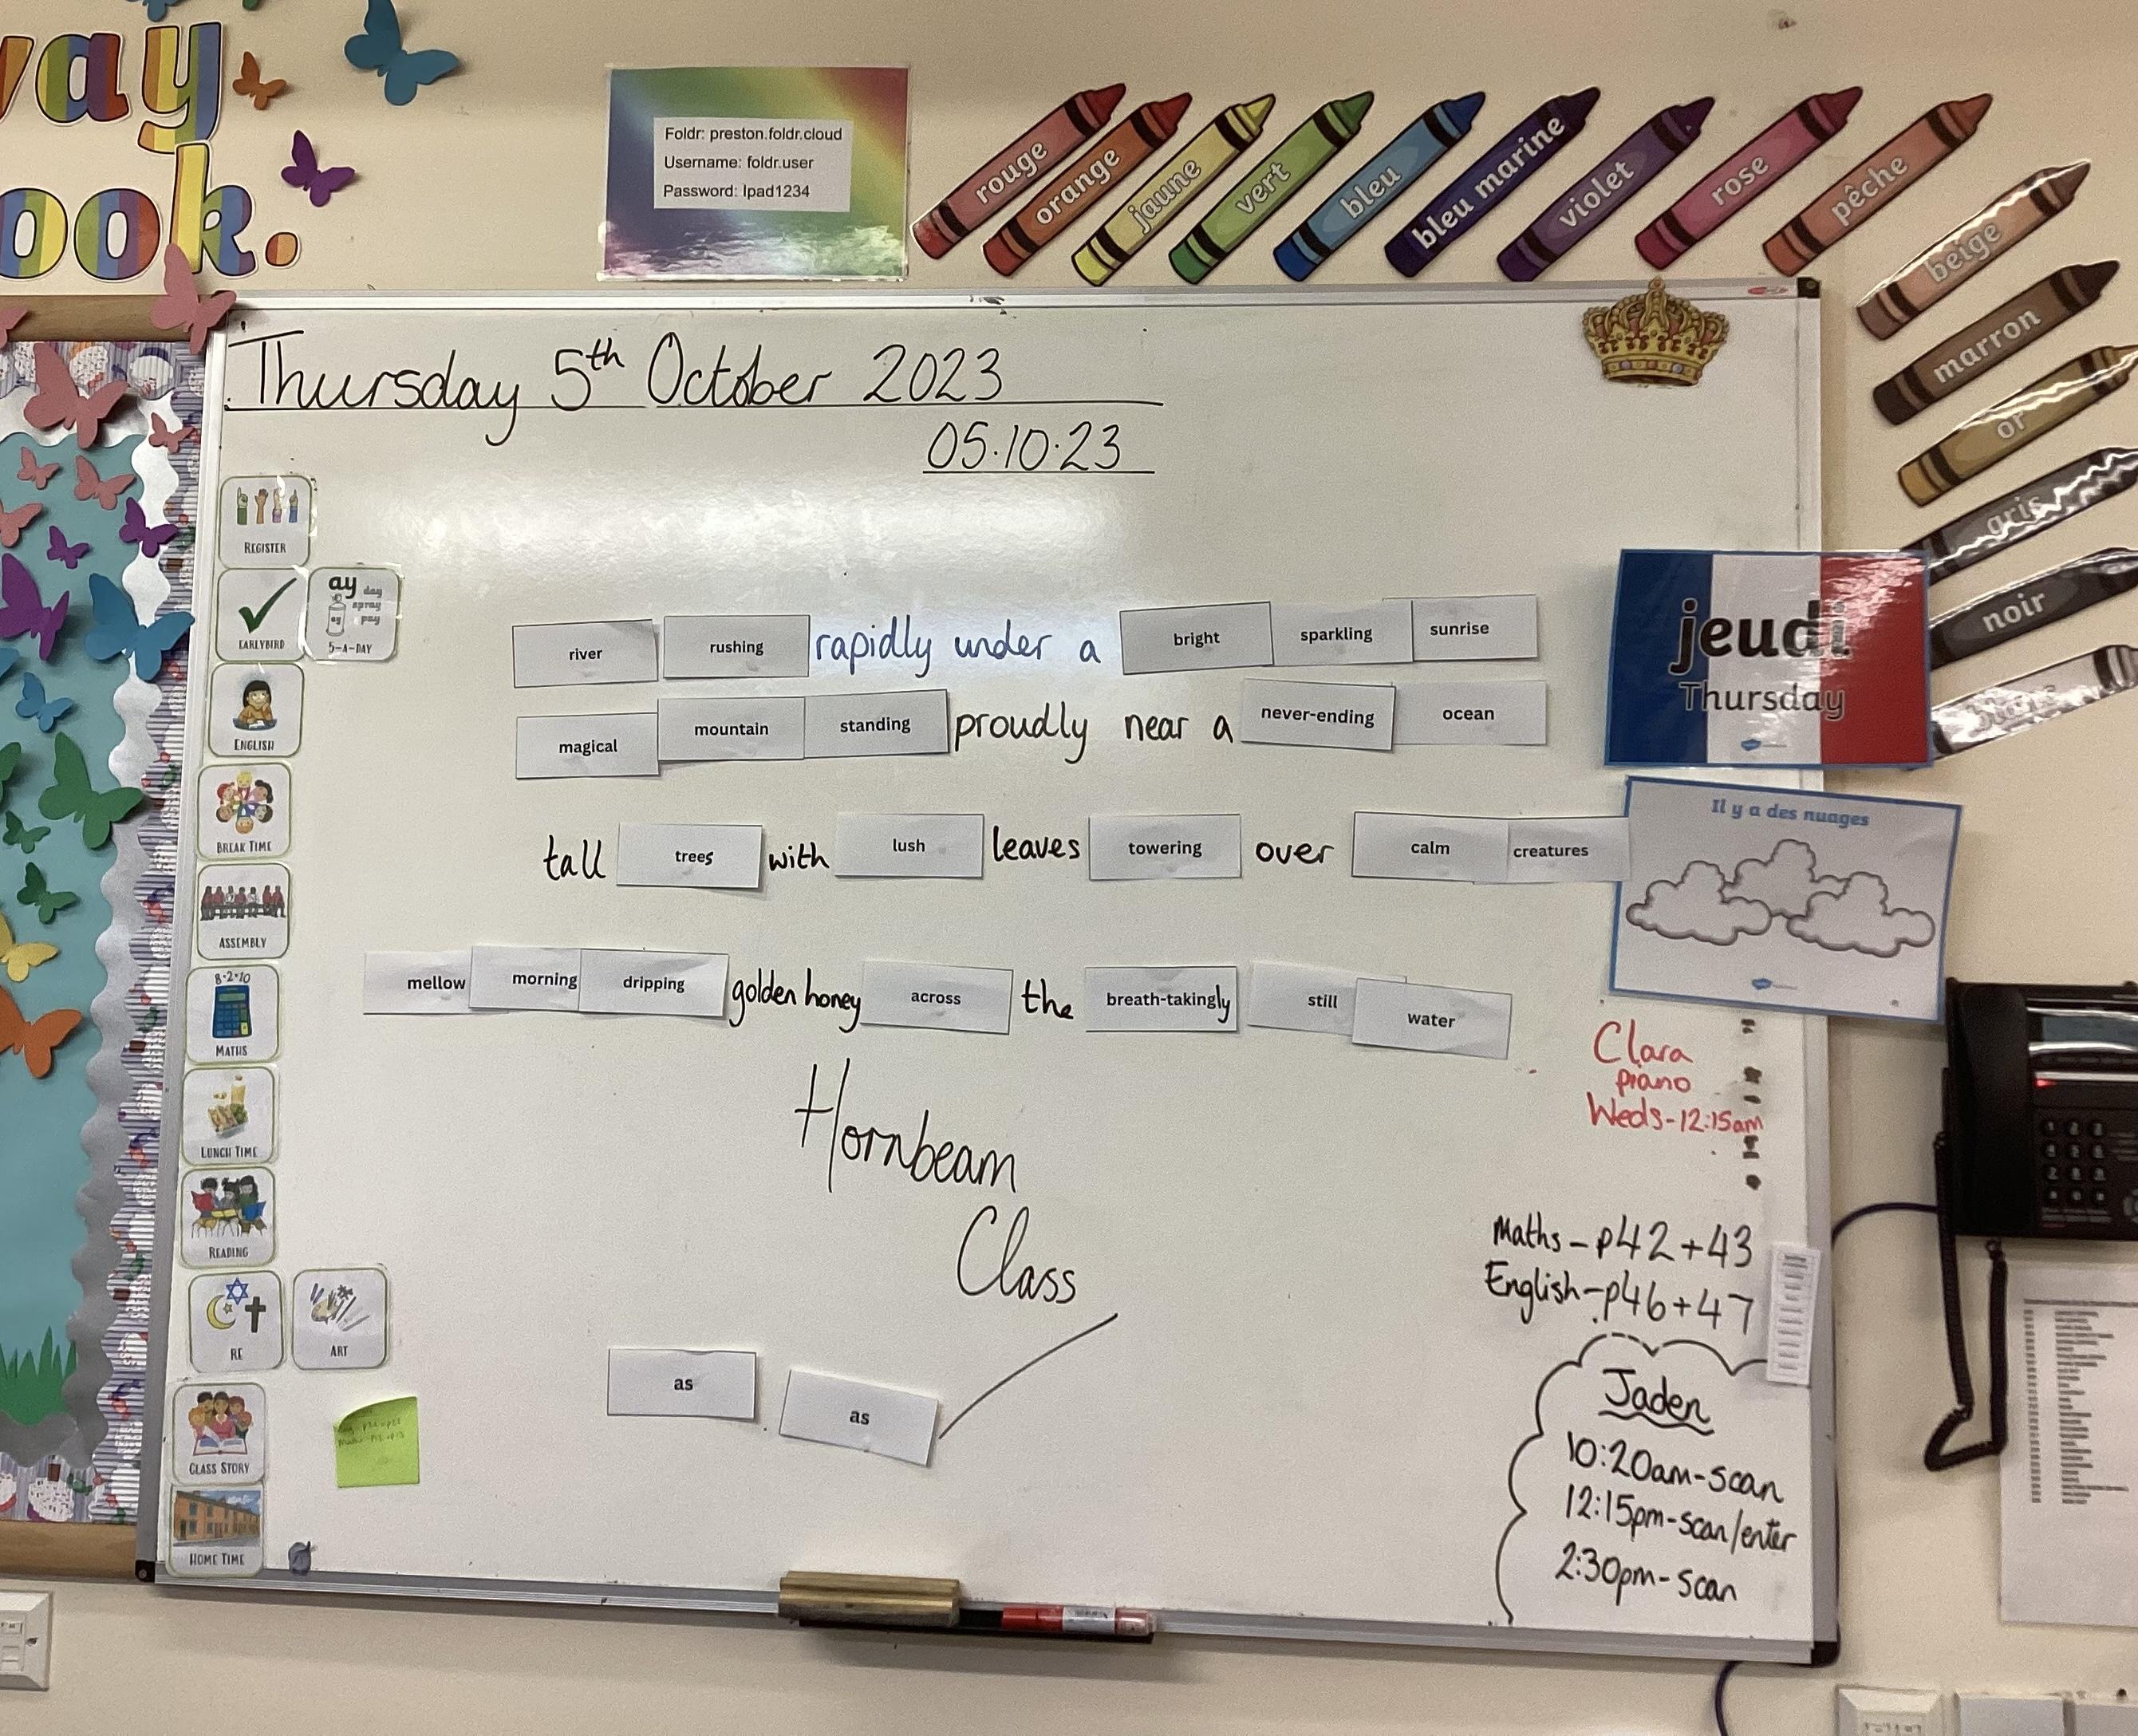 way
ook.
Foldr: preston.foldr.cloud
Username: foldr.user
Password: Ipad1234
rouge
orange
jaune
vert
bleu
bleu marine
violet
rose
pêche
beige
marron
or
gris
noir
Thursday 5th October 2023
05.10.23
REGISTER
EARLYBIRD
ay day
spray
ay pay
5-A-DAY
ENGLISH
BREAK TIME
ASSEMBLY
MATHS
LUNCH TIME
READING
RE
ART
CLASS STORY
HOME TIME
river rushing rapidly under a bright sparkling sunrise
magical mountain standing proudly near a never-ending ocean
tall trees with lush leaves towering over calm creatures
mellow morning dripping golden honey across the breath-takingly still water
Hornbeam
Class
as as
jeudi
Thursday
Il y a des nuages
Clara
piano
Weds-12:15am
Maths - p42 + 43
English - p46 + 47
Jaden
10:20am-scan
12:15pm-scan/enter
2:30pm-scan